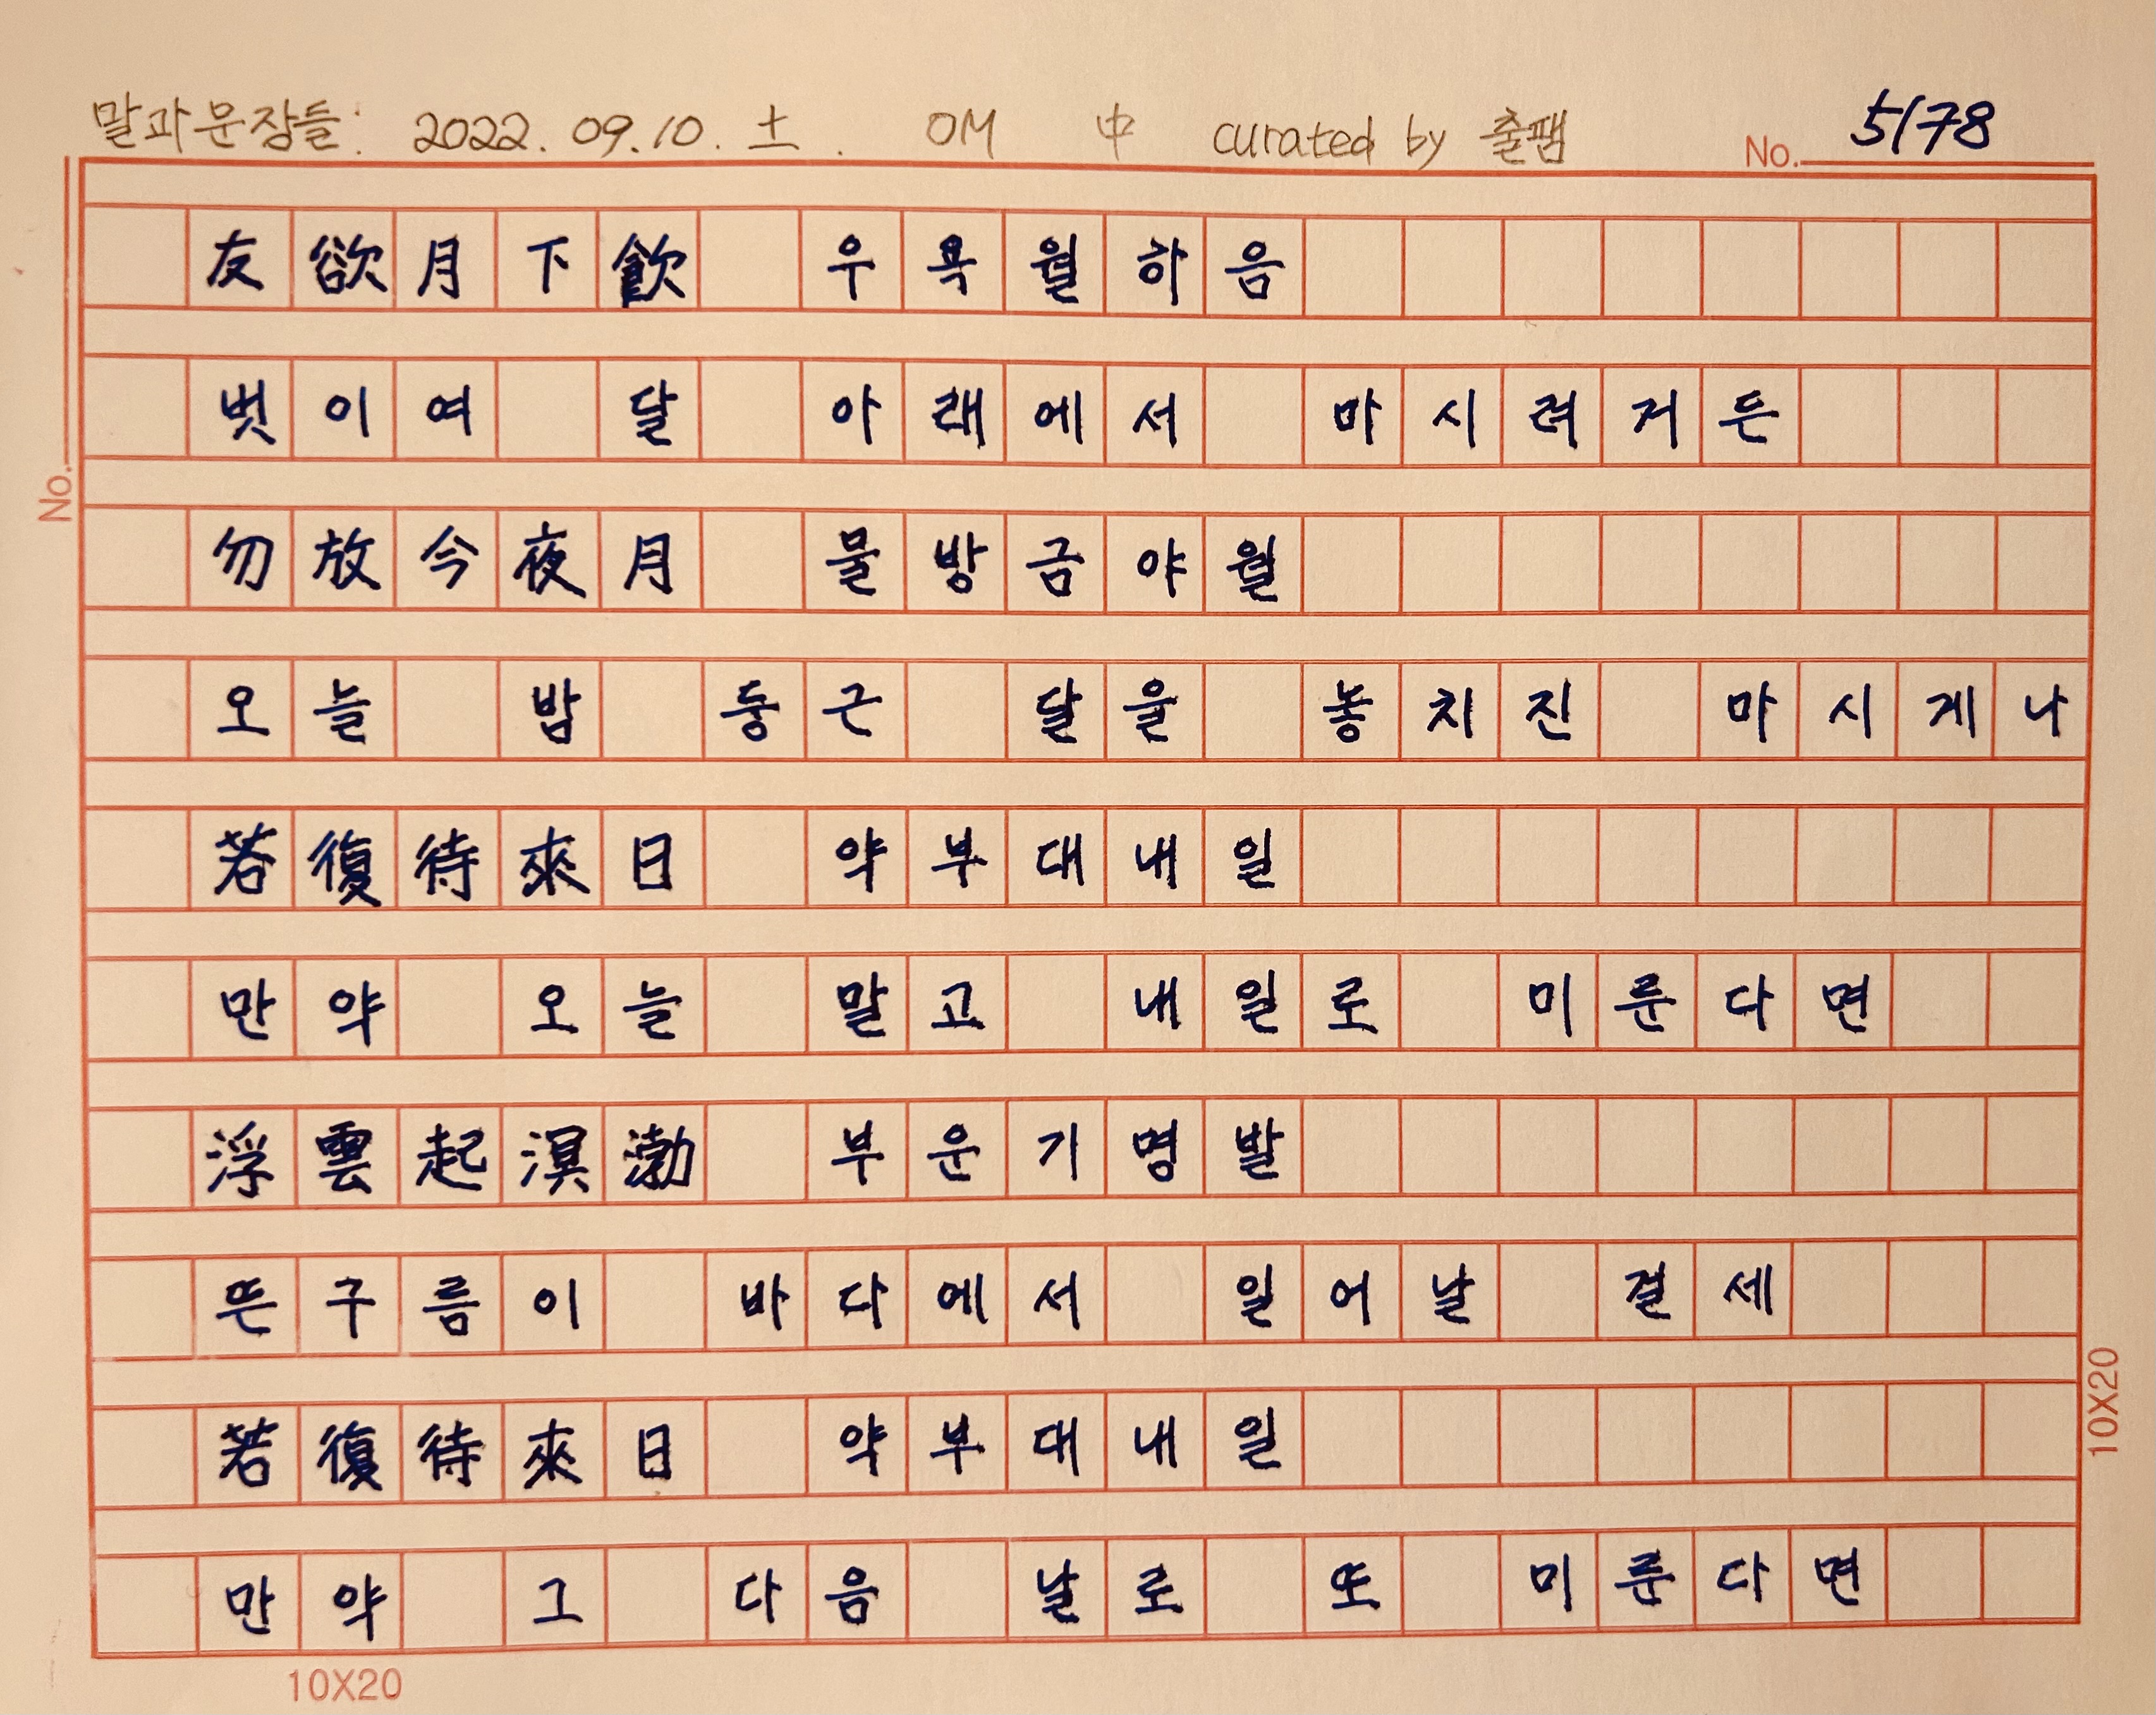 말과문장들: 2022. 09. 10. 土. OM 中 curated by 출팸 No. 5178
友欲月下飮 우욕월하음
벗이여 달 아래에서 마시려거든
勿放今夜月 물방금야월
오늘 밤 둥근 달을 놓치진 마시게나
若復待來日 약부대내일
만약 오늘 말고 내일로 미룬다면
浮雲起溟渤 부운기명발
뜬구름이 바다에서 일어날 걸세
若復待來日 약부대내일
만약 그 다음 날로 또 미룬다면
No.
10X20
10X20